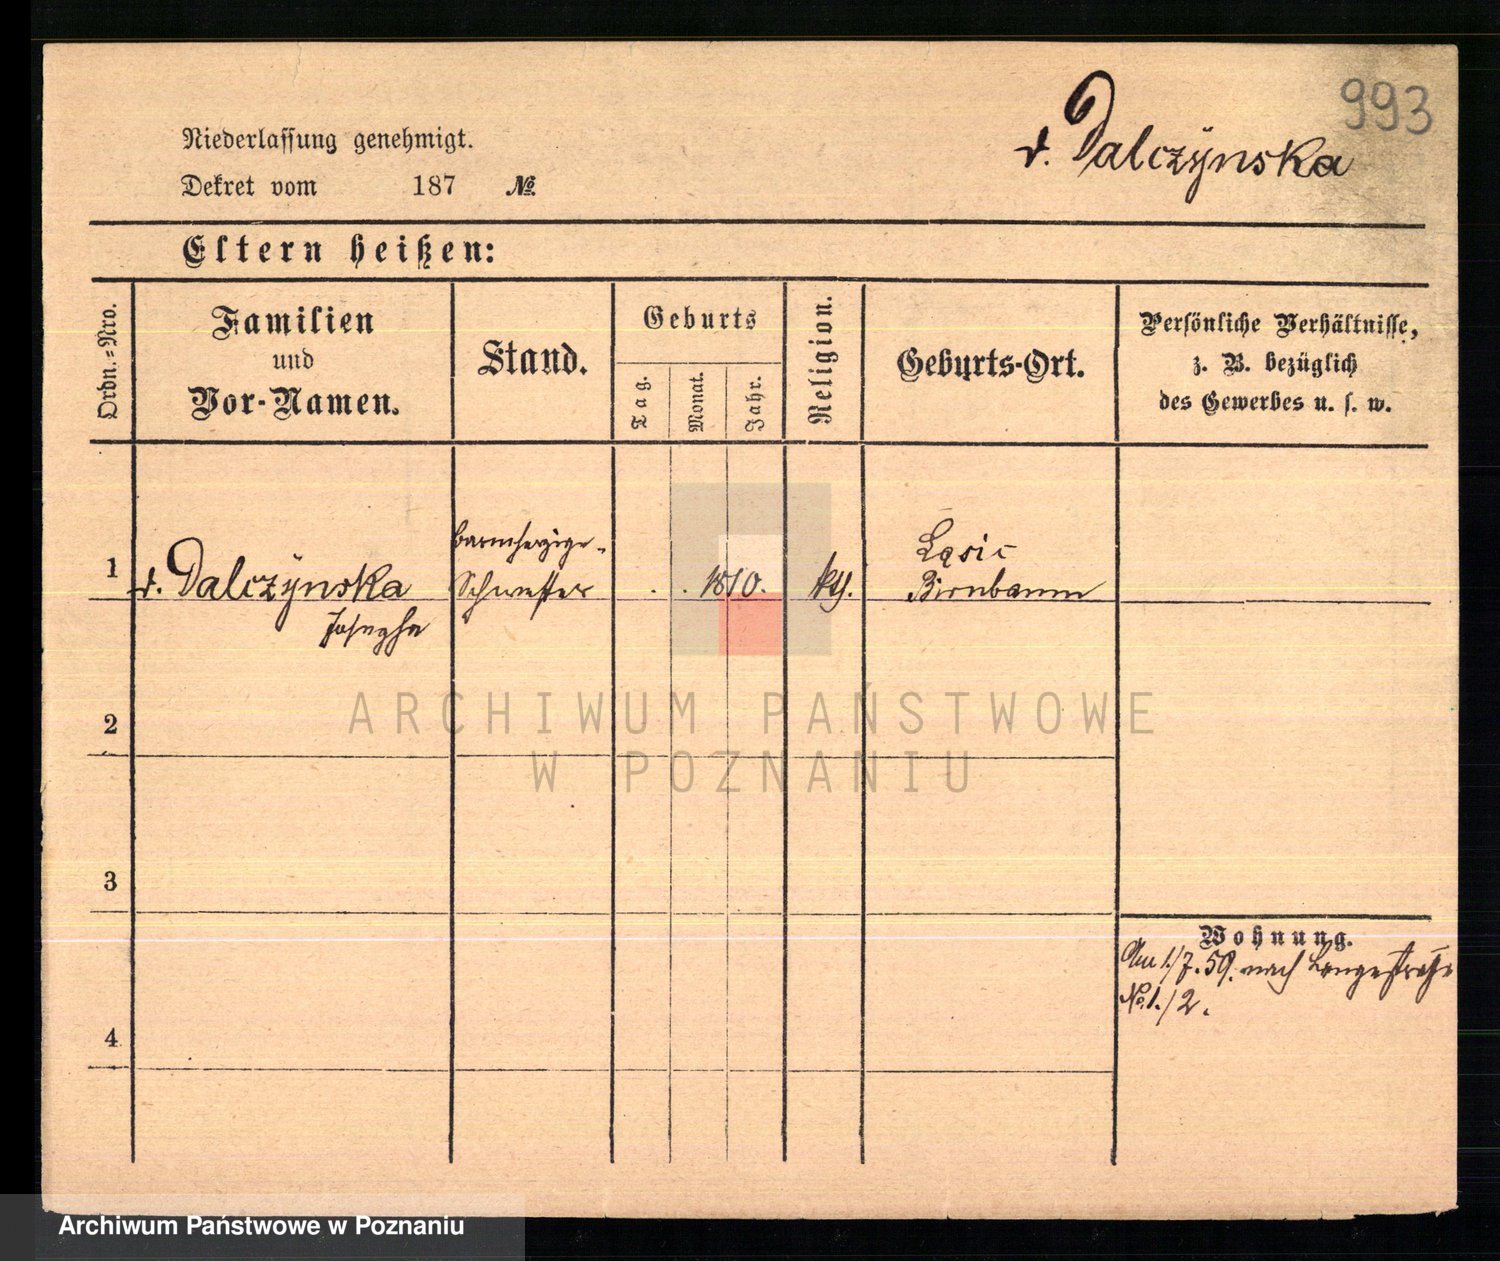 993
v. Dalczynska
Niederlassung genehmigt.
Dekret vom 187 №
Eltern heißen:
Ordn.=Nro.
Familien
und
Vor-Namen.
Stand.
Geburts
Tag.
Monat.
Jahr.
Religion.
Geburts-Ort.
Persönliche Verhältnisse,
z. B. bezüglich
des Gewerbes u. s. w.
1
v. Dalczynska
Josepha
barmherzige
Schwester
1810.
kth.
Birnbaum
2
3
4
Wohnung.
Am 1./7. 59. nach Langestraße
No. 1./2.
ARCHIWUM PAŃSTWOWE
W POZNANIU
Archiwum Państwowe w Poznaniu